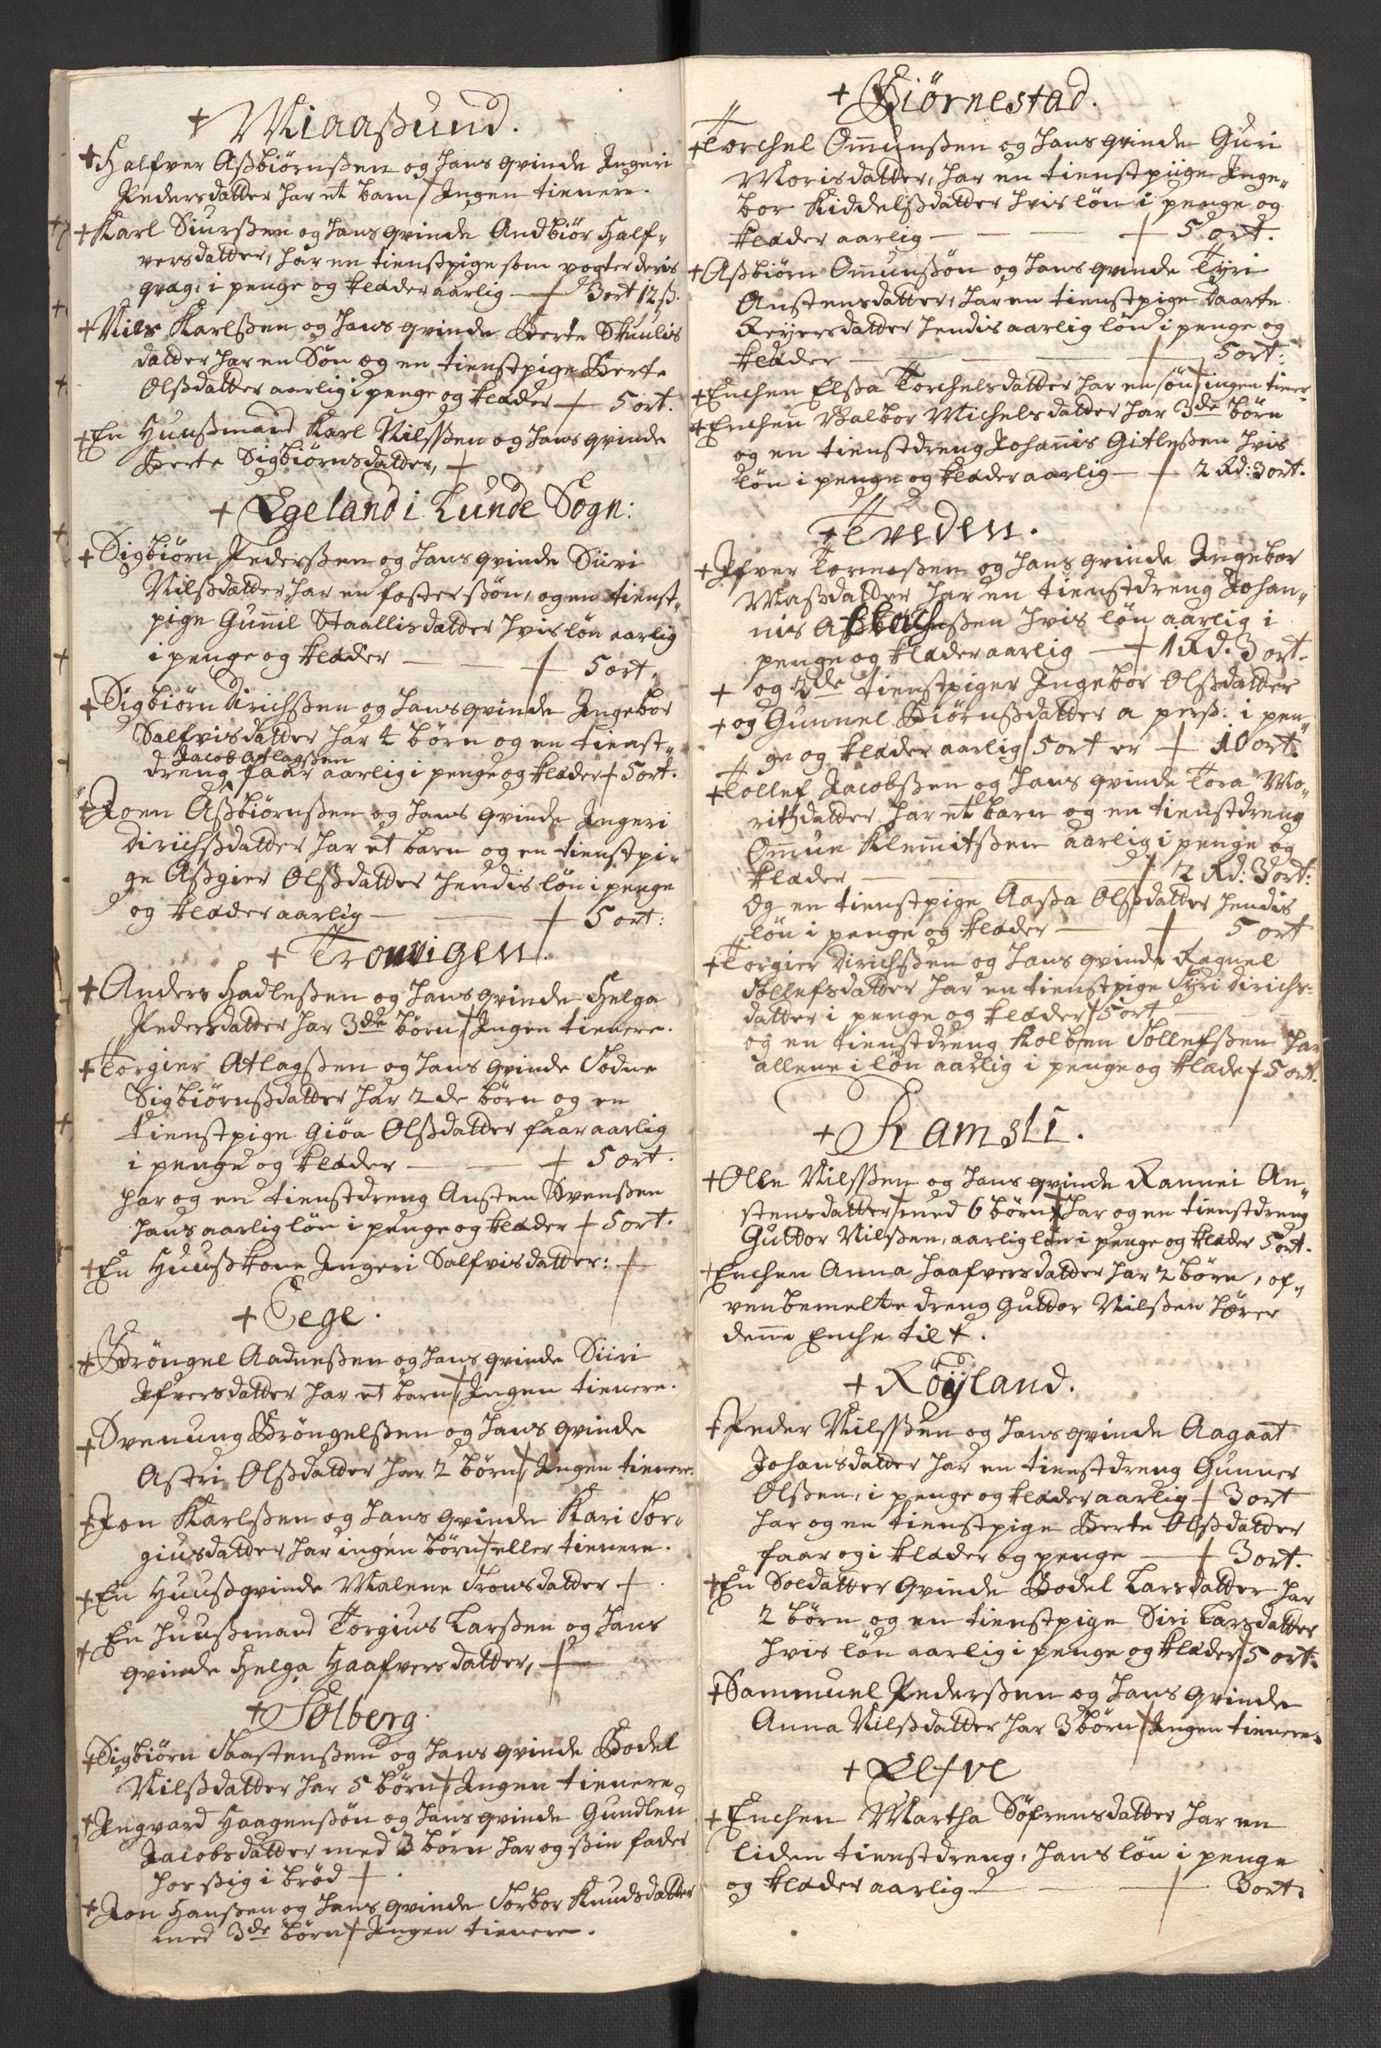 + Miaaßund.
+ Halfver Aßbiørnßen og hans qvinde Ingeri
Pedersdatter har et barn / Ingen tienere.
+ Karl Siurßen og hans qvinde Andbiør Half-
versdatter, har en tienstpige som vogter deris
qvæg, i penge og klæder aarlig — 3 ort 12 ß.
+ Nils Karlßen og hans qvinde Berte Skuulis
datter har en Søn og en tienstpige Berte
Olßdatter aarlig i penge og klæder + 5 ort.
+ En Huußmand Karl Nilßen og hans qvinde
Berte Sigbiørnsdatter, +
+ Egeland i Lunde Sogn:
+ Sigbiørn Pederßen og hans qvinde Siiri
Nilßdatter har en fosterßøn, og en tienst-
pige Gunnil Staallisdatter hvis løn aarlig
i penge og klæder — + 5 ort.
+ Sigbiørn Dirichßen og hans qvinde Ingebor
Salfvisdatter har 4 børn og en tienst-
Jacob Atlagßen
dreng faar aarlig i penge og klæder + 5 ort.
+ Joen Aßbiørnßen og hans qvinde Ingeri
Dirichßdatter har et barn og en tienstpi-
ge Aßgier Olßdatter hendis løn i penge
og klæder aarlig — + 5 ort:
+ Tronvigen.
+ Anders Hadleßen og hans qvinde Helga
Pedersdatter har 3de børn / Ingen tienere.
+ Torgier Atlagßen og hans qvinde Todne
Sigbiørnßdatter har 2de børn og en
tienstpige Giøa Olßdatter faar aarlig
i penge og klæder — + 5 ort.
har og en tienstdreng Austen Svenßen
hans aarlig løn i penge og klæder + 5 ort.
+ En Huußkone Ingeri Salfvisdatter: +
+ Eege.
+ Brøngel Aadneßen og hans qvinde Siiri
Ifversdatter har et barn / Ingen tienere.
+ Svenung Brøngelßen og hans qvinde
Astri Olßdatter har 2 børn / Ingen tienere.
+ Jon Karlßen og hans qvinde Kari Tor-
giusdatter har ingen børn / eller tienere.
+ En Huußqvinde Malene Tronsdatter +
+ En huußmand Torgius Larßen og hans
qvinde Helga Haafversdatter, +
+ Solberg.
+ Sigbiørn Taastenßen og hans qvinde Bodel
Nilßdatter har 5 børn / Ingen tienere
+ Ingvard Haagenßøn og hans qvinde Gundleu
Jacobsdatter med 3 børn har og ßin fader
hos ßig i brød +
+ Jon Hanßen og hans qvinde Torbor Knudsdatter
med 3de børn / Ingen tienere.
+ Biørnestad.
+ Torchel Ommunßen og hans qvinde Guri
Morisdatter, har en tienstpiige Inge-
bor Kiddelßdatter hvis løn i penge og
klæder aarlig — + 5 ort.
+ Aßbiørn Ommunßøn og hans qvinde Tyri
Austensdatter, har en tienstpige Daarte
Reyersdatter hendis aarlig løn i penge og
klæder — 5 ort:
+ Enchen Elßa Torchelsdatter har en søn / ingen tiener
+ Enchen Valbor Michelsdatter har 3de børn
og en tienstdreng Johannis Gitleßen hvis
løn i penge og klæder aarlig — + 2 Rd: 3 ort.
+ Tveden.
+ Ifver Torneßen og hans qvinde Ingebor
Maßdatter har en tienstdreng Johan-
nis ßen hvis løn aarlig i
penge og klæder aarlig — + 1 Rd. 3 ort.
+ og 2de tienstpiger Ingebor Olßdatter
+ og Gunnel Biørnßdatter a perß: i pen-
ge og klæder aarlig / 5 ort er + 10 ort.
+ Tollef Jacobßen og hans qvinde Tora Mo-
ritzdatter har et barn og en tienstdreng
Ommun Klemmitßen aarlig i penge og
klæder — 2 Rd: 3 ort:
Og en tienstpige Aaßa Olßdatter hendis
løn i penge og klæder — + 5 ort
+ Torgier Dirichßen og hans qvinde Ragnel
Tollefsdatter har en tienstpige Syri Dirichs-
datter i penge og klæder / 5 ort —
og en tienstdreng Kolben Tollefßen har
allene i løn aarlig i penge og klæde + 5 ort.
+ Ramsli.
+ Olle Nilßen og hans qvinde Rannei Au-
stensdatter / med 6 børn / har og en tienstdreng
Guttor Nilßen, aarlig løn i penge og klæder 5 ort.
+ Enchen Anna Haafversdatter har 2 børn, of-
venbemelte dreng Guttor Nilßen hører
denne Enche til +.
+ Røÿland.
+ Peder Nilßen og hans qvinde Aagaat
Johansdatter har en tienstdreng Gunner
Olßen, i penge og klæder aarlig + 3 ort
har og en tienstpige Berte Olßdatter
faar og i klæder og penge — + 3 ort.
+ En Soldatter qvinde Bodel Larsdatter har
2 børn og en tienstpige Siri Larsdatter
hvis løn aarlig i penge og klæder / 5 ort.
+ Sammuel Pederßen og hans qvinde
Anna Nilßdatter har 3 børn / Ingen tienere.
+ Elfve
+ Enchen Martha Søfrensdatter har en
liden tienstdreng, hans løn i penge
og klæder aarlig — + 3 ort.